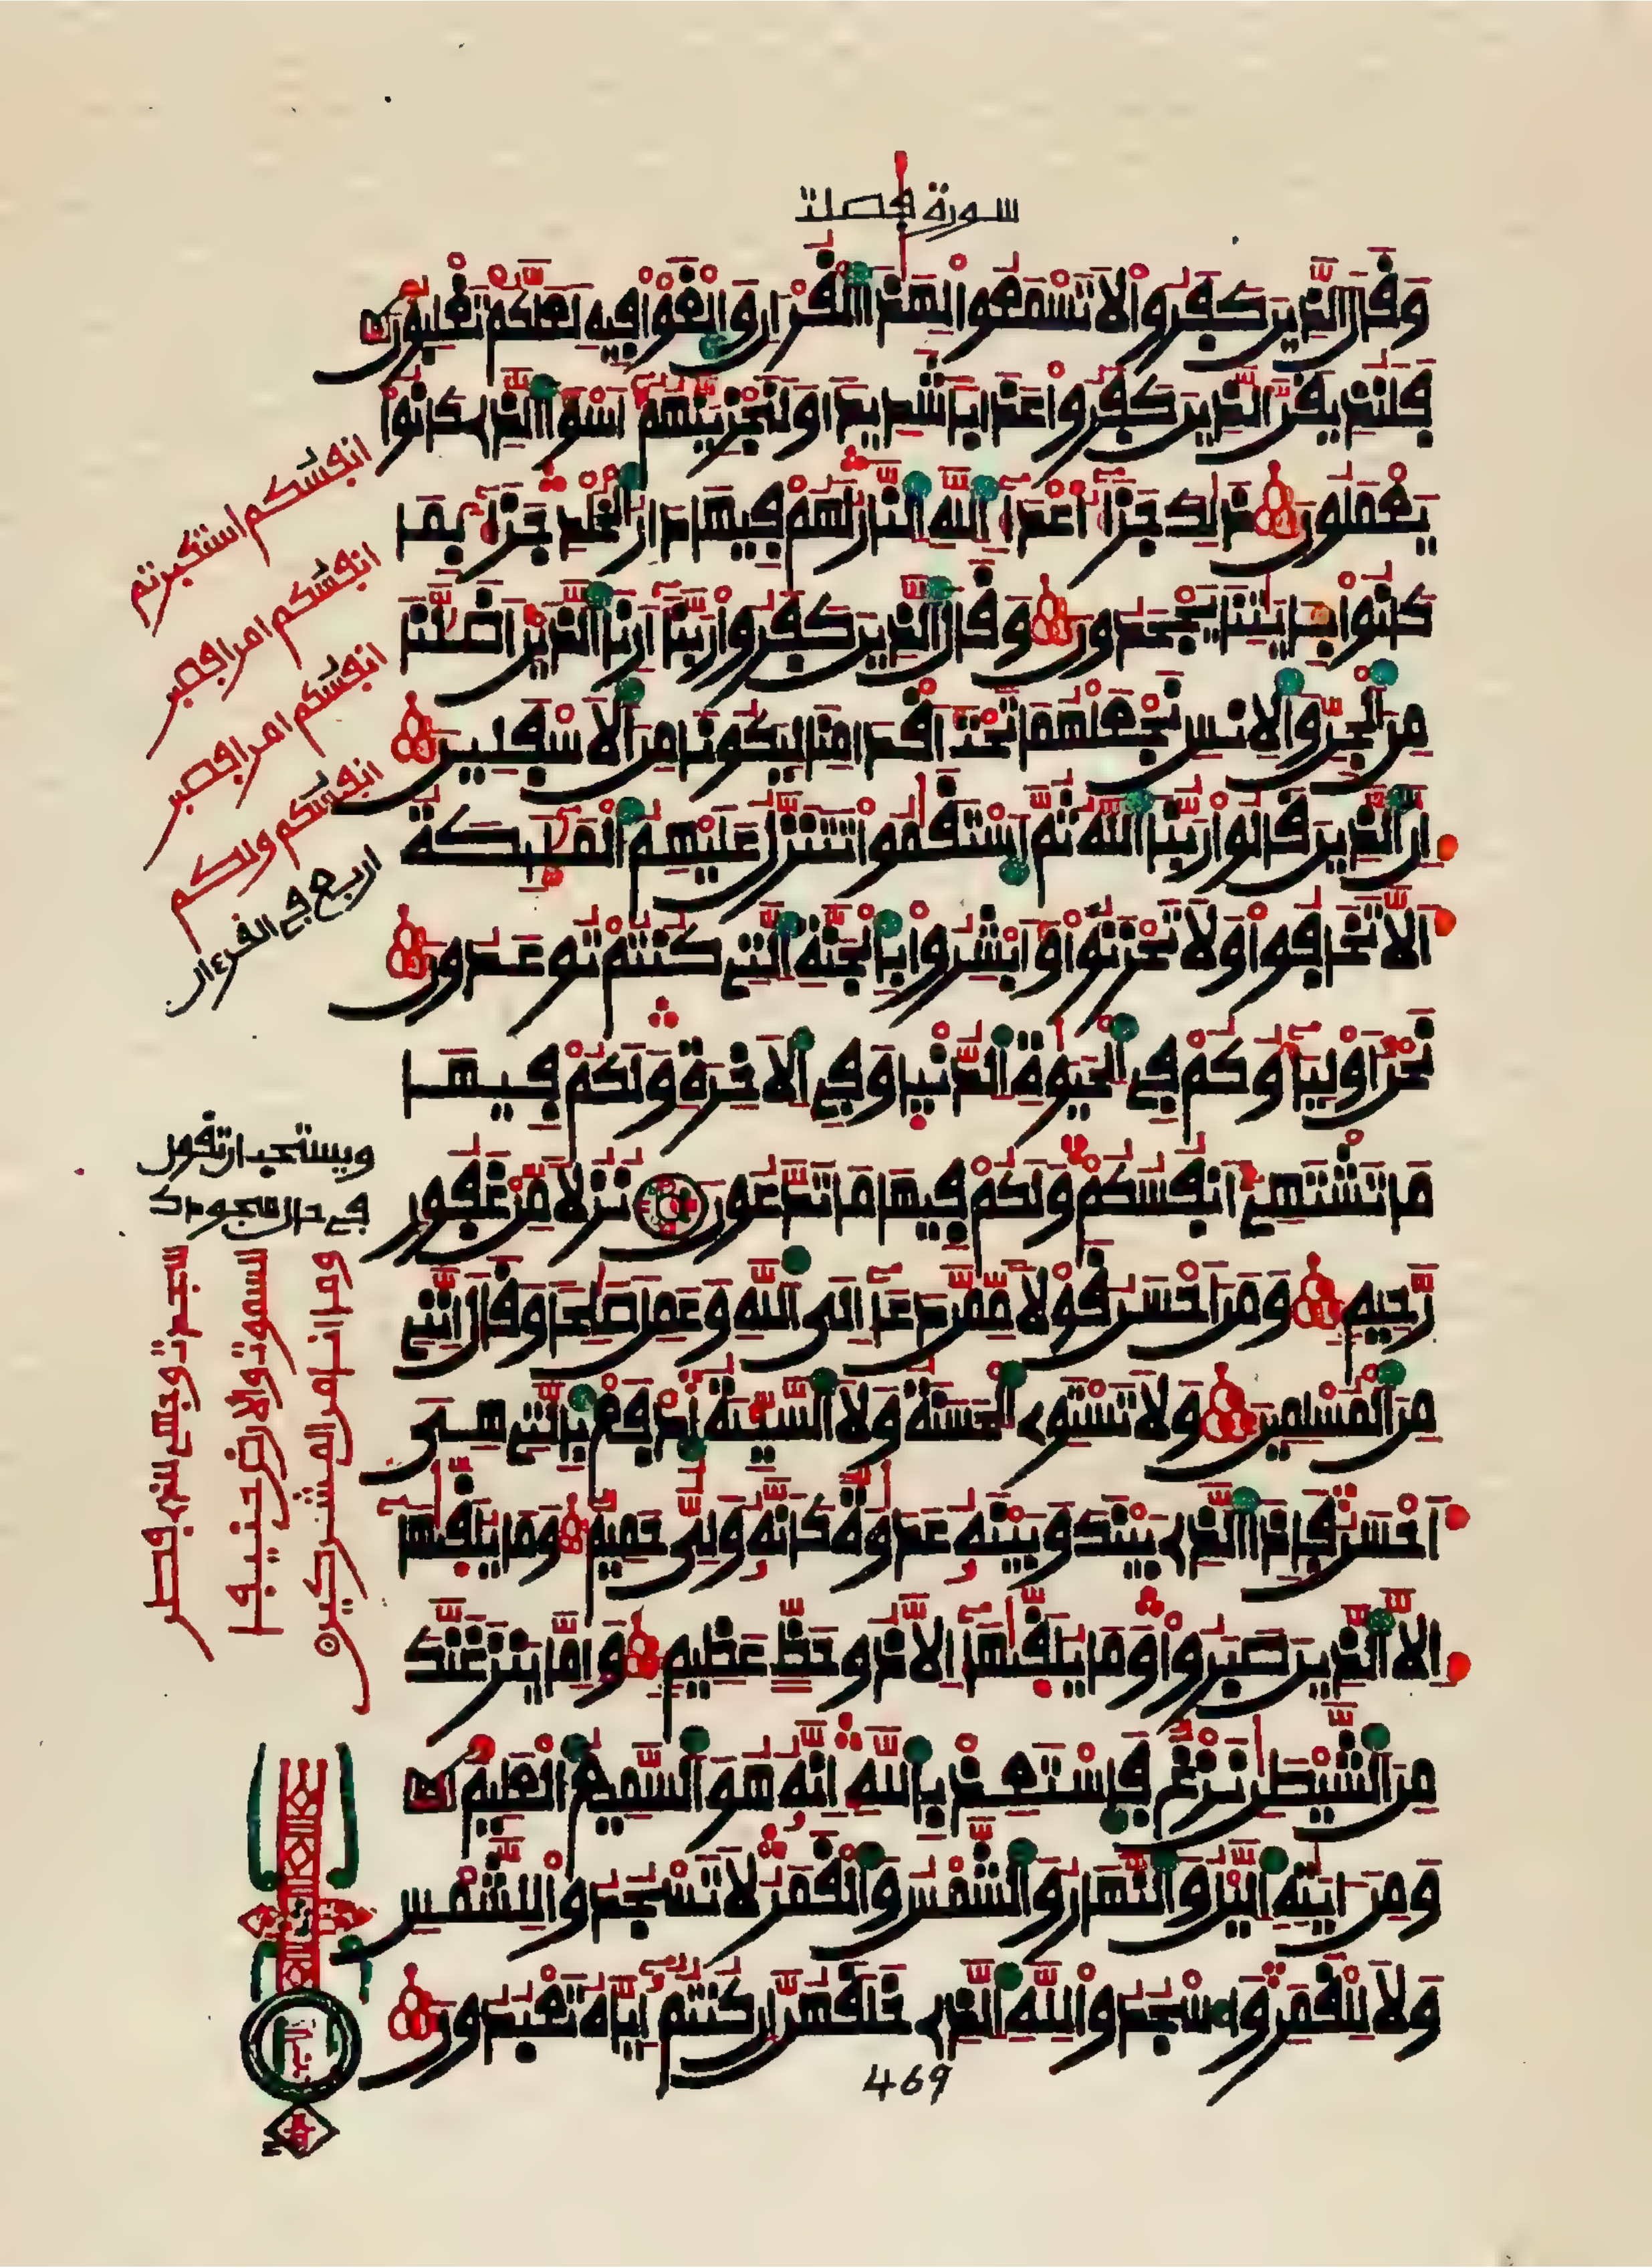 سورة فصلت
وَقَالَ الذِينَ كَفَرُواْ لاَ تَسْمَعُواْ لِهَذَا اَلْقُرْءَانِ وَالْغَوْاْ فِيهِ لَعَلَّكُمْ تَغْلِبُونَ
فَلَنُذِيقَنَّ اَلذِينَ كَفَرُواْ عَذَاباً شَدِيداً وَلَنَجْزِيَنَّهُمُ أَسْوَأَ اَلذِى كَانُواْ
يَعْمَلُونَ ذَلِكَ جَزَاءُ اعْدَاءِ اِللَّهِ اِلنَّارُ لَهُمْ فِيهَا دَارُ اُلْخُلْدِ جَزَاءً بِمَا
كَانُواْ بِـَٔايَتِنَا يَجْحَدُونَ وَقَالَ اَلذِينَ كَفَرُواْ رَبَّنَا أَرِنَا اَلذَيْنِ أَضَلَّنَا
مِنَ اَلْجِنِّ وَالاِنسِ نَجْعَلْهُمَا تَحْتَ أَقْدَامِنَا لِيَكُونَا مِنَ اَلاَسْفَلِينَ
إِنَّ اَلذِينَ قَالُواْ رَبُّنَا اَللَّهُ ثُمَّ اَسْتَقَمُواْ تَتَنَزَّلُ عَلَيْهِمُ اُلْمَلَئِكَةُ
أَلاَّ تَخَافُواْ وَلاَ تَحْزَنُواْ وَأَبْشِرُواْ بِالْجَنَّةِ اِلتِى كُنتُمْ تُوعَدُونَ
نَحْنُ أَوْلِيَاؤُكُمْ فِى اِلْحَيَوةِ اِلدُّنْيَا وَفِى اِلاَخِرَةِ وَلَكُمْ فِيهَا
مَا تَشْتَهِى أَنفُسُكُمْ وَلَكُمْ فِيهَا مَا تَدَّعُونَ نُزُلاً مِّنْ غَفُورٍ
رَّحِيمٍ وَمَنَ أَحْسَنُ قَوْلاً مِّمَّن دَعَا إِلَى اَللَّهِ وَعَمِلَ صَلِحاً وَقَالَ إِنَّنِى
مِنَ اَلْمُسْلِمِينَ وَلاَ تَسْتَوِى اِلْحَسَنَةُ وَلاَ اَلسَّيِّئَةُ اُدْفَعْ بِالتِى هِىَ
أَحْسَنُ فَإِذَا اَلذِى بَيْنَكَ وَبَيْنَهُ عَدَوَةٌ كَأَنَّهُ وَلِىٌّ حَمِيمٌ وَمَا يُلَقَّيهَا
إِلاَّ اَلذِينَ صَبَرُواْ وَمَا يُلَقَّيهَا إِلاَّ ذُو حَظٍّ عَظِيمٍ وَإِمَّا يَنزَغَنَّكَ
مِنَ اَلشَّيْطَنِ نَزْغٌ فَاسْتَعِذْ بِاللَّهِ إِنَّهُ هُوَ اَلسَّمِيعُ اُلْعَلِيمُ
وَمِنَ ايَتِهِ اِلَّيْلُ وَالنَّهَارُ وَالشَّمْسُ وَالْقَمَرُ لاَ تَسْجُدُواْ لِلشَّمْسِ
وَلاَ لِلْقَمَرِ وَاسْجُدُواْ لِلَّهِ اِلذِى خَلَقَهُنَّ إِن كُنتُمُ إِيَّاهُ تَعْبُدُونَ
469
انفسكم استكبرتم
انفسكم امرا فصبر
انفسكم امرا فصبر
انفسكم ولكم
اربع في القرءان
ويستحب ان تقول
في حال سجودك
سجدت وجهي للذي فطر
السموت والارض حنيفا
وما انا من المشركين